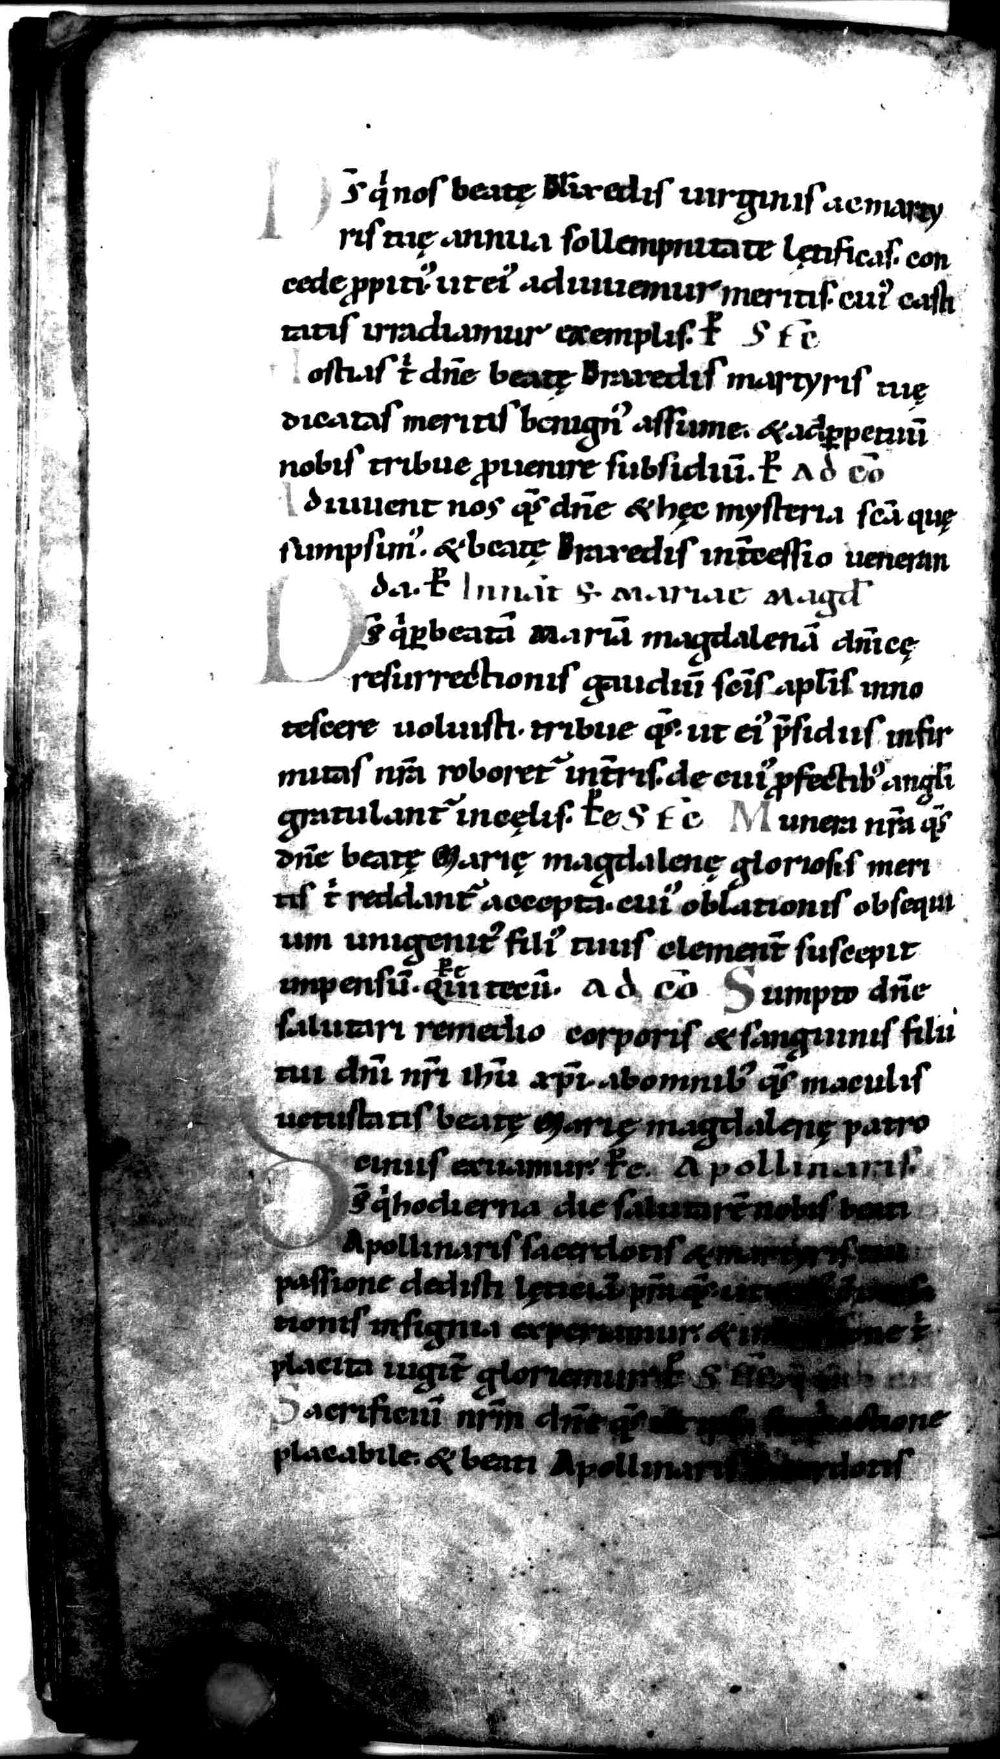 Ds̄ qͥ nos beatę Praxedis uirginis ac marty
ris tuę annua sollempnitate lętificas. con
cede ꝓpitiꝰ. ut eiꝰ adiuuemur meritis. cuiꝰ casti
tatis irradiamur exemplis. P̄ SEC̄
Hostias tͥ dn̄e beatę Praxedis martyris tuę
dicatas meritis benignꝰ assume. & ad ꝑpetuū
nobis tribue ꝓuenire subsidiū. P̄ AD CŌ
Adiuuent nos qs̄ dn̄e & hęc mysteria sc̄a quę
sumpsimꝰ. & beatę Praxedis int̄cessio ueneran
da. P̄ In nat̄ S. MARIAE MAGD̄
Ds̄ qͥ ꝑ beatā Mariā magdalenā dn̄icę
resurrectionis gaudiū sc̄is apl̄is inno
tescere uoluisti. tribue qs̄. ut eiꝰ p̄sidiis infir
mitas nr̄a roboret᷑ in t̄ris. de cuiꝰ ꝓfectibꝰ angl̄i
gratulant᷑ in cęlis. P̄e SEC̄ Munera nr̄a qs̄
dn̄e beatę Marię magdalenę gloriosis meri
tis tͥ reddant᷑ accepta. cuiꝰ oblationis obsequi
um unigenitꝰ filiꝰ tuus clement̄ suscepit
impensū. P̄e Qui tecū. AD CŌ Sumpto dn̄e
salutari remedio corporis & sanguinis filii
tui dn̄i nr̄i ihū xp̄i. ab omnibꝰ qs̄ maculis
uetustatis beatę Marię magdalenę patro
ciniis exuamur. P̄e. Apollinaris.
Ds̄ qͥ hodierna die salutarē nobis beati
Apollinaris sacerdotis & martyris tui
passione dedisti lętitiā
tionis insignia experiamur. &
placita iugit̄ gloriemur. P̄ S
Sacrificiū nr̄m dn̄e qs̄
placabile. & beati Apollinaris sacerdotis